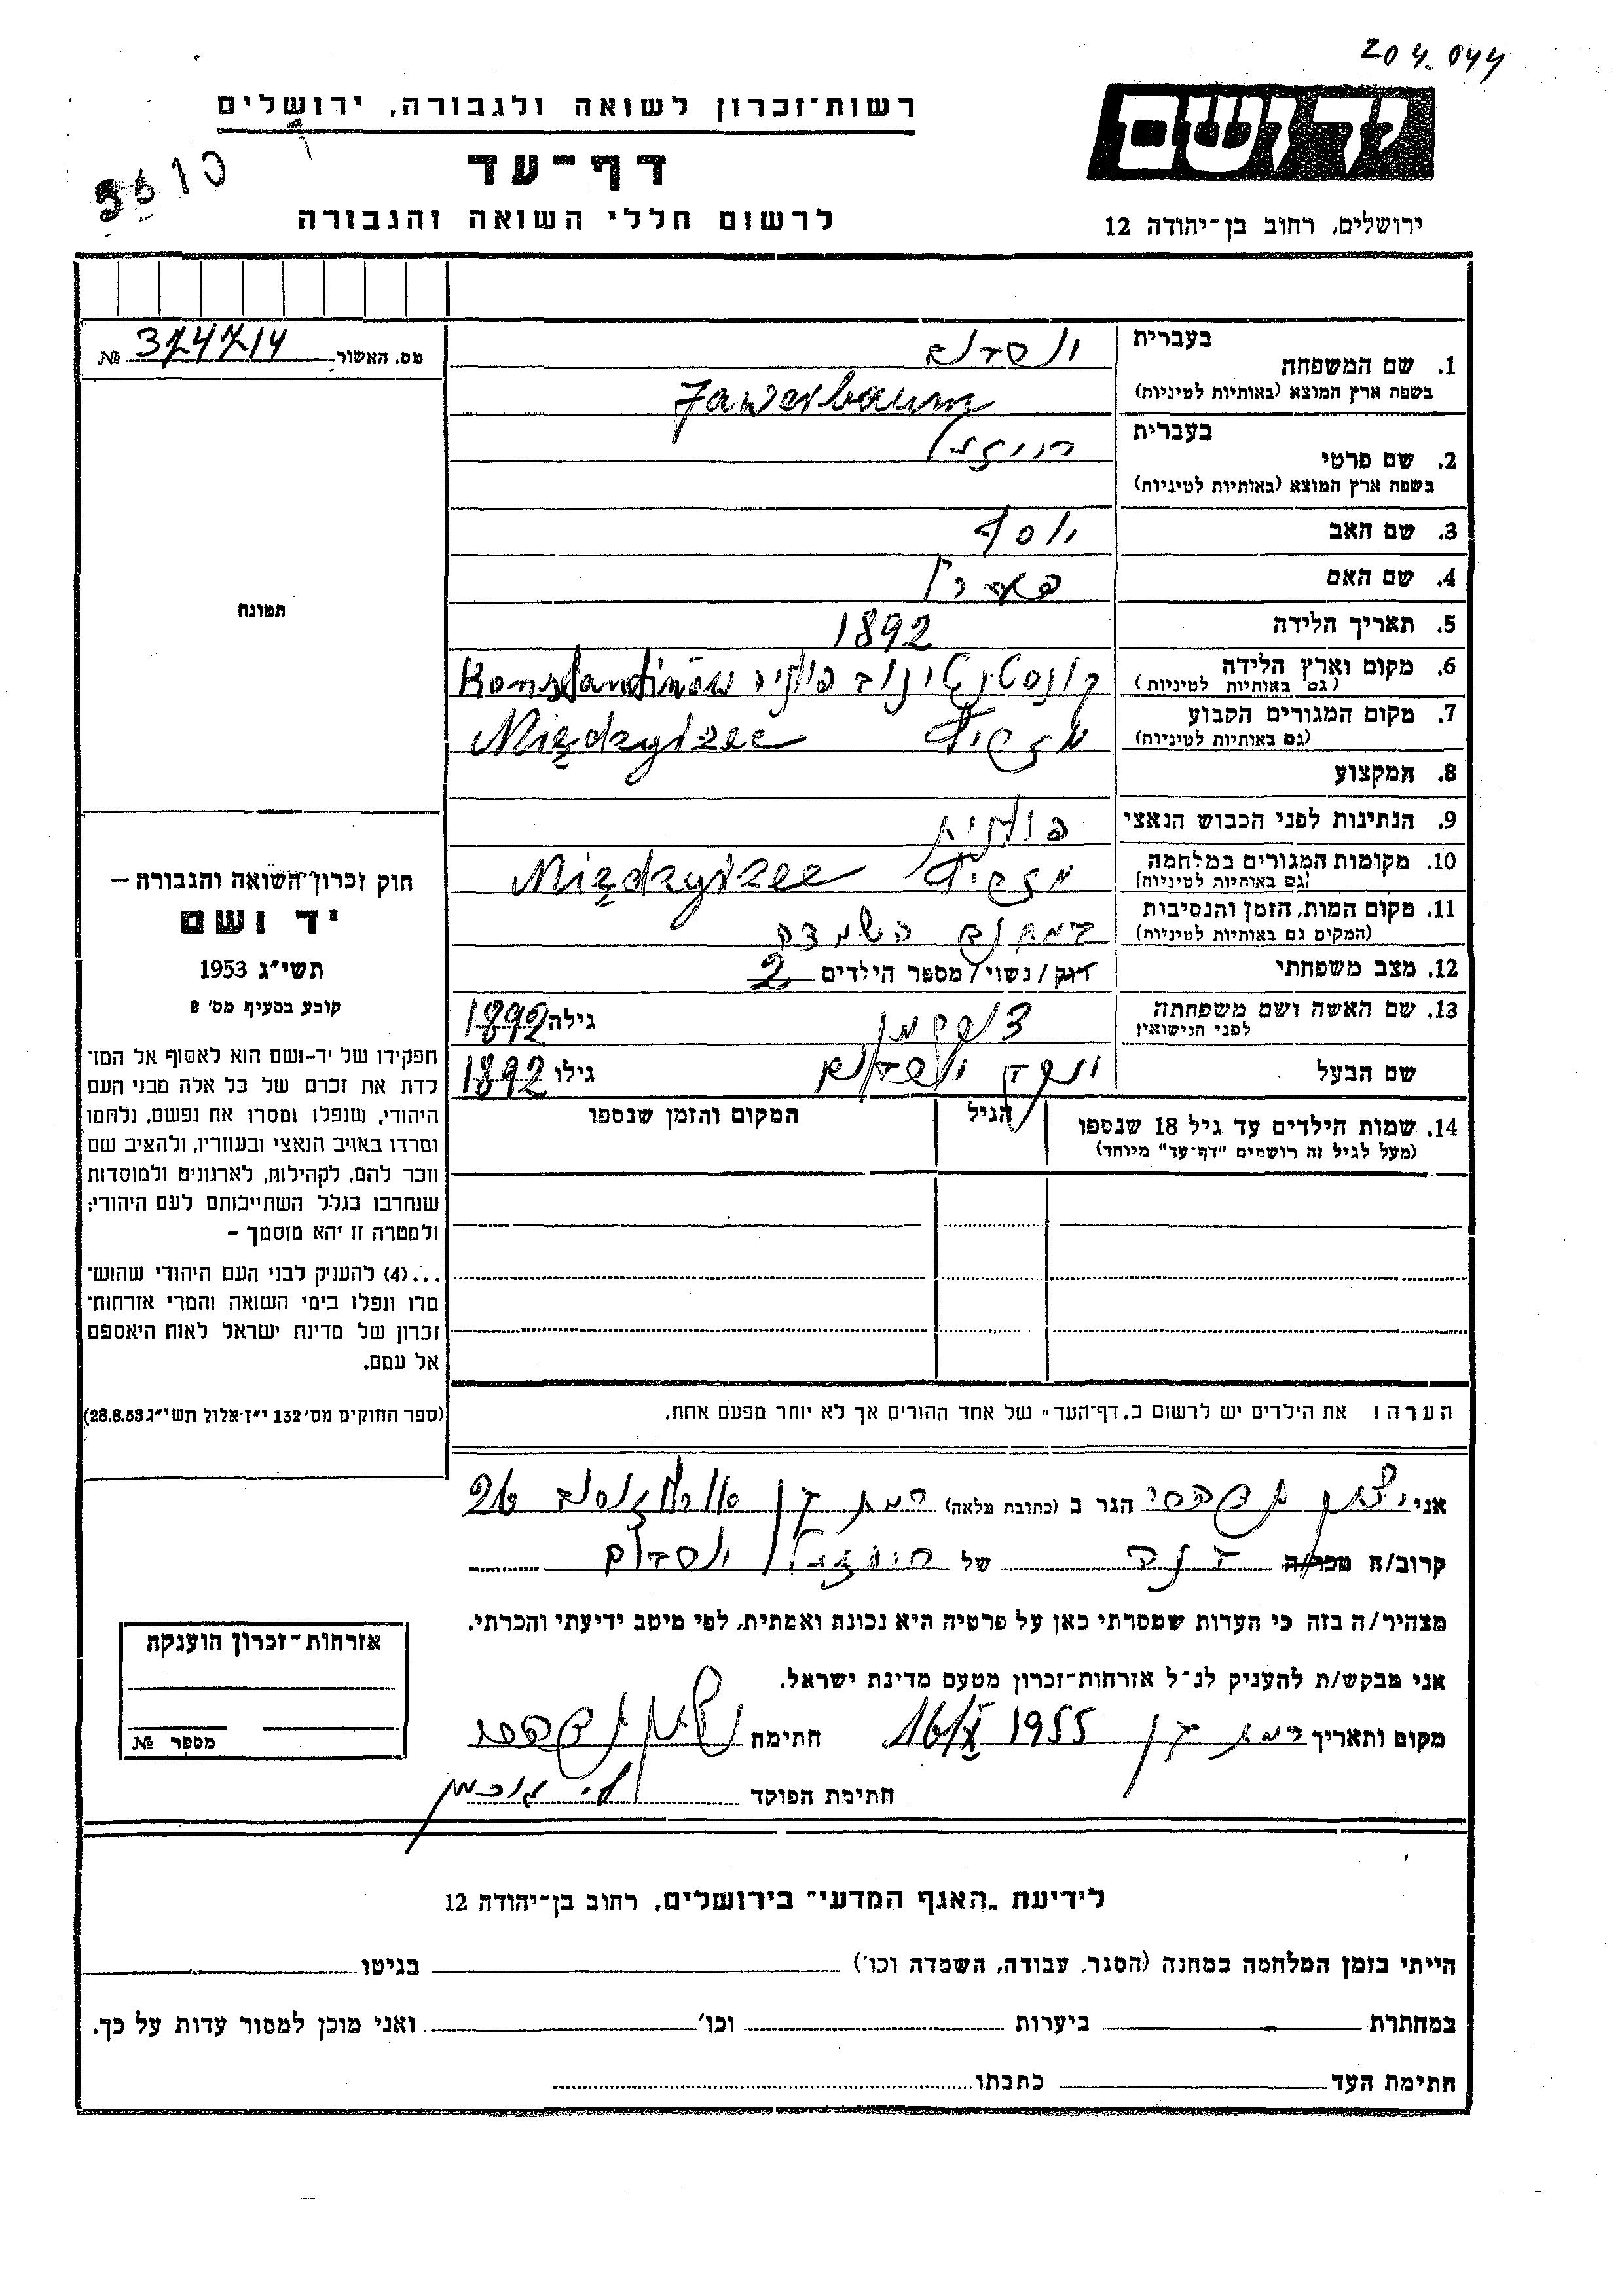 204.044
רשות־זכרון לשואה ולגבורה, ירושלים
יד ושם
דף־עד
5610
לרשום חללי השואה והגבורה
ירושלים, רחוב בן־יהודה 12
מס. האשור № 374714
1. שם המשפחה
בעברית
בשפת ארץ המוצא (באותיות לטיניות) Jawerbaum
2. שם פרטי
בעברית
בשפת ארץ המוצא (באותיות לטיניות)
3. שם האב יוסף
4. שם האם
5. תאריך הלידה 1892
6. מקום וארץ הלידה
(גם באותיות לטיניות) קונסטנטינוב פולין Konstantinów
7. מקום המגורים הקבוע
(גם באותיות לטיניות) Międzyrzec
8. המקצוע
9. הנתינות לפני הכבוש הנאצי פולנית
10. מקומות המגורים במלחמה
(גם באותיות לטיניות) Międzyrzec
11. מקום המות, הזמן והנסיבות
(המקום גם באותיות לטיניות) השמדה
12. מצב משפחתי רוק/נשוי/מספר הילדים 2
13. שם האשה ושם משפחתה
לפני הנישואין גילה 1892
שם הבעל גילו 1892
14. שמות הילדים עד גיל 18 שנספו
(מעל לגיל זה רושמים "דף־עד" מיוחד)
הגיל
המקום והזמן שנספו
תמונה
חוק זכרון השואה והגבורה –
יד ושם
תשי״ג 1953
קובע בסעיף מס׳ 2
תפקידו של יד־ושם הוא לאסוף אל המו־
לדת את זכרם של כל אלה מבני העם
היהודי, שנפלו ומסרו את נפשם, נלחמו
ומרדו באויב הנאצי ובעוזריו, ולהציב שם
וזכר להם, לקהילות, לארגונים ולמוסדות
שנחרבו בגלל השתייכותם לעם היהודי;
ולמטרה זו יהא מוסמך –
...(4) להעניק לבני העם היהודי שהוש־
מדו ונפלו בימי השואה והמרי אזרחות־
זכרון של מדינת ישראל לאות היאספם
אל עמם.
(ספר החוקים מס׳ 132 י״ז אלול תשי״ג 28.8.53)
הערה: את הילדים יש לרשום ב„דף־העד" של אחד ההורים אך לא יותר מפעם אחת.
אני הגר ב (כתובת מלאה) רמת גן 26
קרוב/ה מכר/ה של
מצהיר/ה בזה כי העדות שמסרתי כאן על פרטיה היא נכונה ואמתית, לפי מיטב ידיעתי והכרתי.
אני מבקש/ת להעניק לנ״ל אזרחות־זכרון מטעם מדינת ישראל.
מקום ותאריך רמת גן 16/X 1955 חתימה
חתימת הפוקד
אזרחות־זכרון הוענקה
מספר №
לידיעת „האגף המדעי" בירושלים, רחוב בן־יהודה 12
הייתי בזמן המלחמה במחנה (הסגר, עבודה, השמדה וכו׳) בגיטו
במחתרת ביערות וכו׳ ואני מוכן למסור עדות על כך.
חתימת העד כתבתו